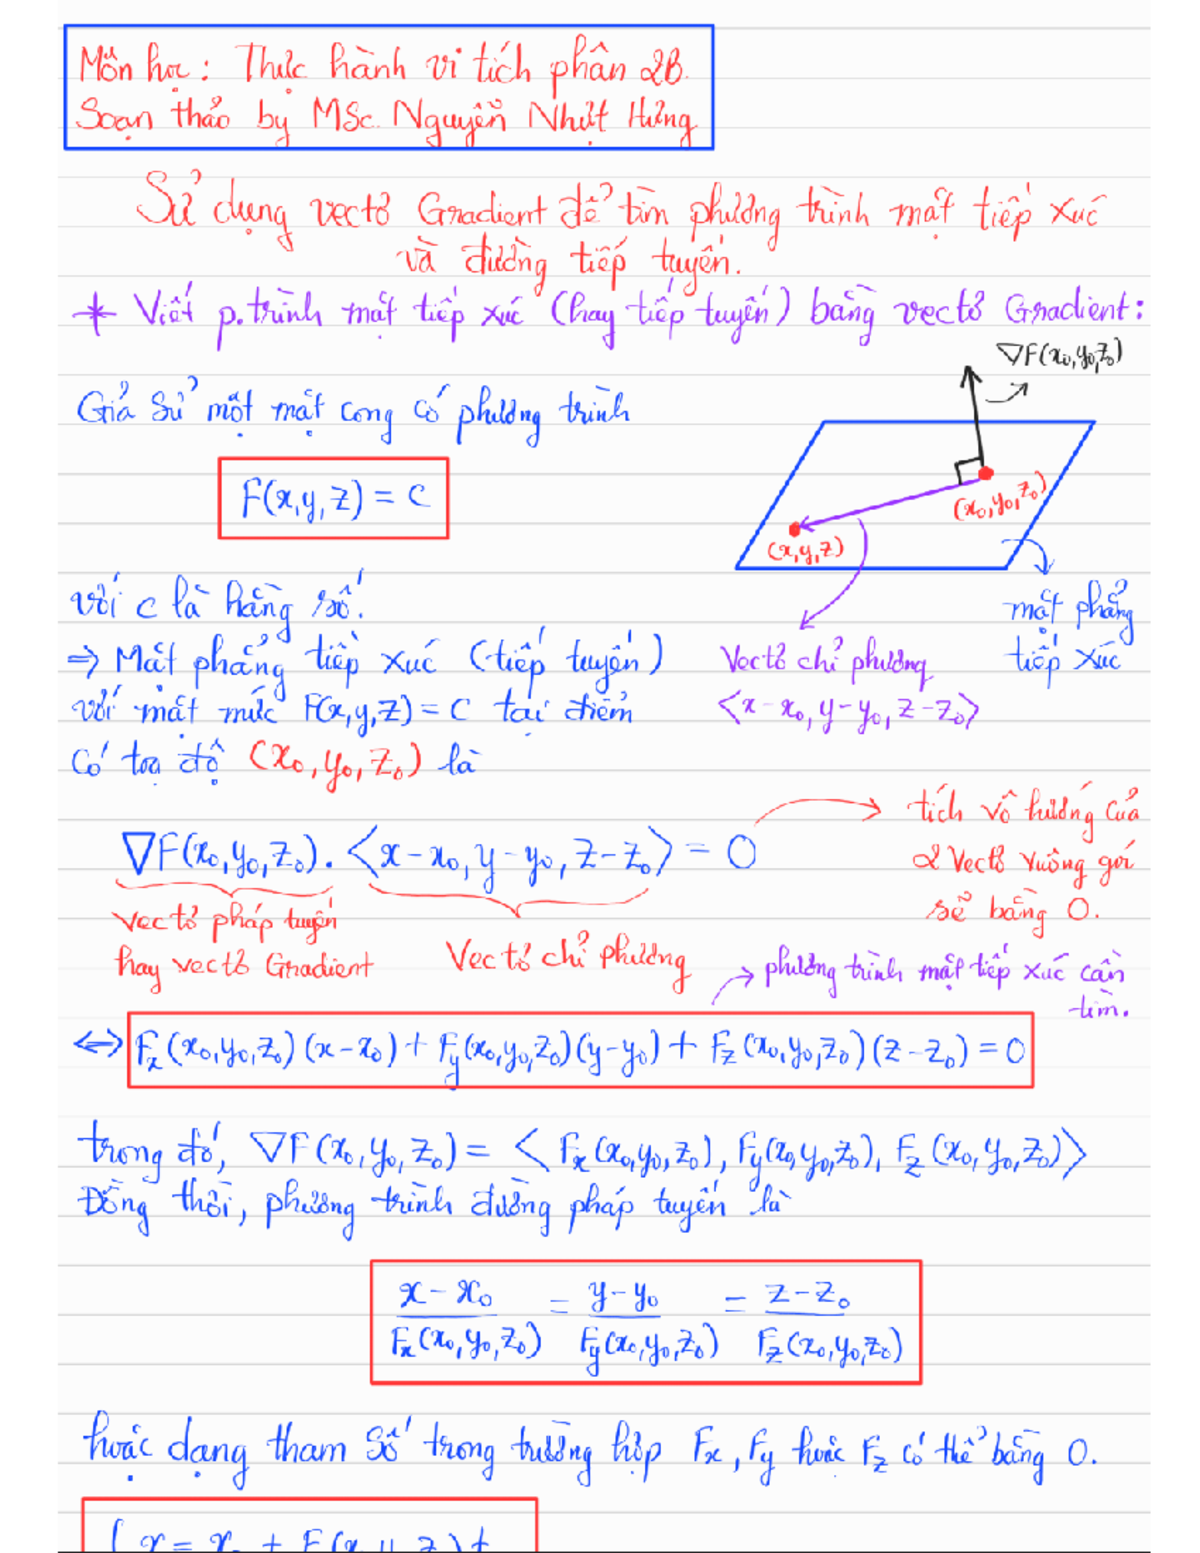 Môn học: Thực hành vi tích phân 2B.
Soạn thảo by MSc. Nguyễn Nhựt Hưng
Sử dụng vectơ Gradient để tìm phương trình mặt tiếp xúc
và đường tiếp tuyến.
* Viết p.trình mặt tiếp xúc (hay tiếp tuyến) bằng vectơ Gradient:
∇F(x₀,y₀,z₀)
Giả sử một mặt cong có phương trình
F(x,y,z) = C
(x₀,y₀,z₀)
(x,y,z)
với C là hằng số.
mặt phẳng
tiếp xúc
⇒ Mặt phẳng tiếp xúc (tiếp tuyến)
với mặt mức F(x,y,z) = C tại điểm
có toạ độ (x₀,y₀,z₀) là
Vectơ chỉ phương
<x-x₀, y-y₀, z-z₀>
∇F(x₀,y₀,z₀). <x-x₀, y-y₀, z-z₀> = 0
tích vô hướng của
2 Vectơ vuông gói
sẽ bằng 0.
Vectơ pháp tuyến
hay vectơ Gradient
Vectơ chỉ phương
phương trình mặt tiếp xúc cần
tìm.
⇔ Fₓ(x₀,y₀,z₀)(x-x₀) + F_y(x₀,y₀,z₀)(y-y₀) + F_z(x₀,y₀,z₀)(z-z₀) = 0
trong đó, ∇F(x₀,y₀,z₀) = <Fₓ(x₀,y₀,z₀), F_y(x₀,y₀,z₀), F_z(x₀,y₀,z₀)>
Đồng thời, phương trình đường pháp tuyến là
x-x₀ / Fₓ(x₀,y₀,z₀) = y-y₀ / F_y(x₀,y₀,z₀) = z-z₀ / F_z(x₀,y₀,z₀)
hoặc dạng tham số trong trường hợp Fₓ, F_y hoặc F_z có thể bằng 0.